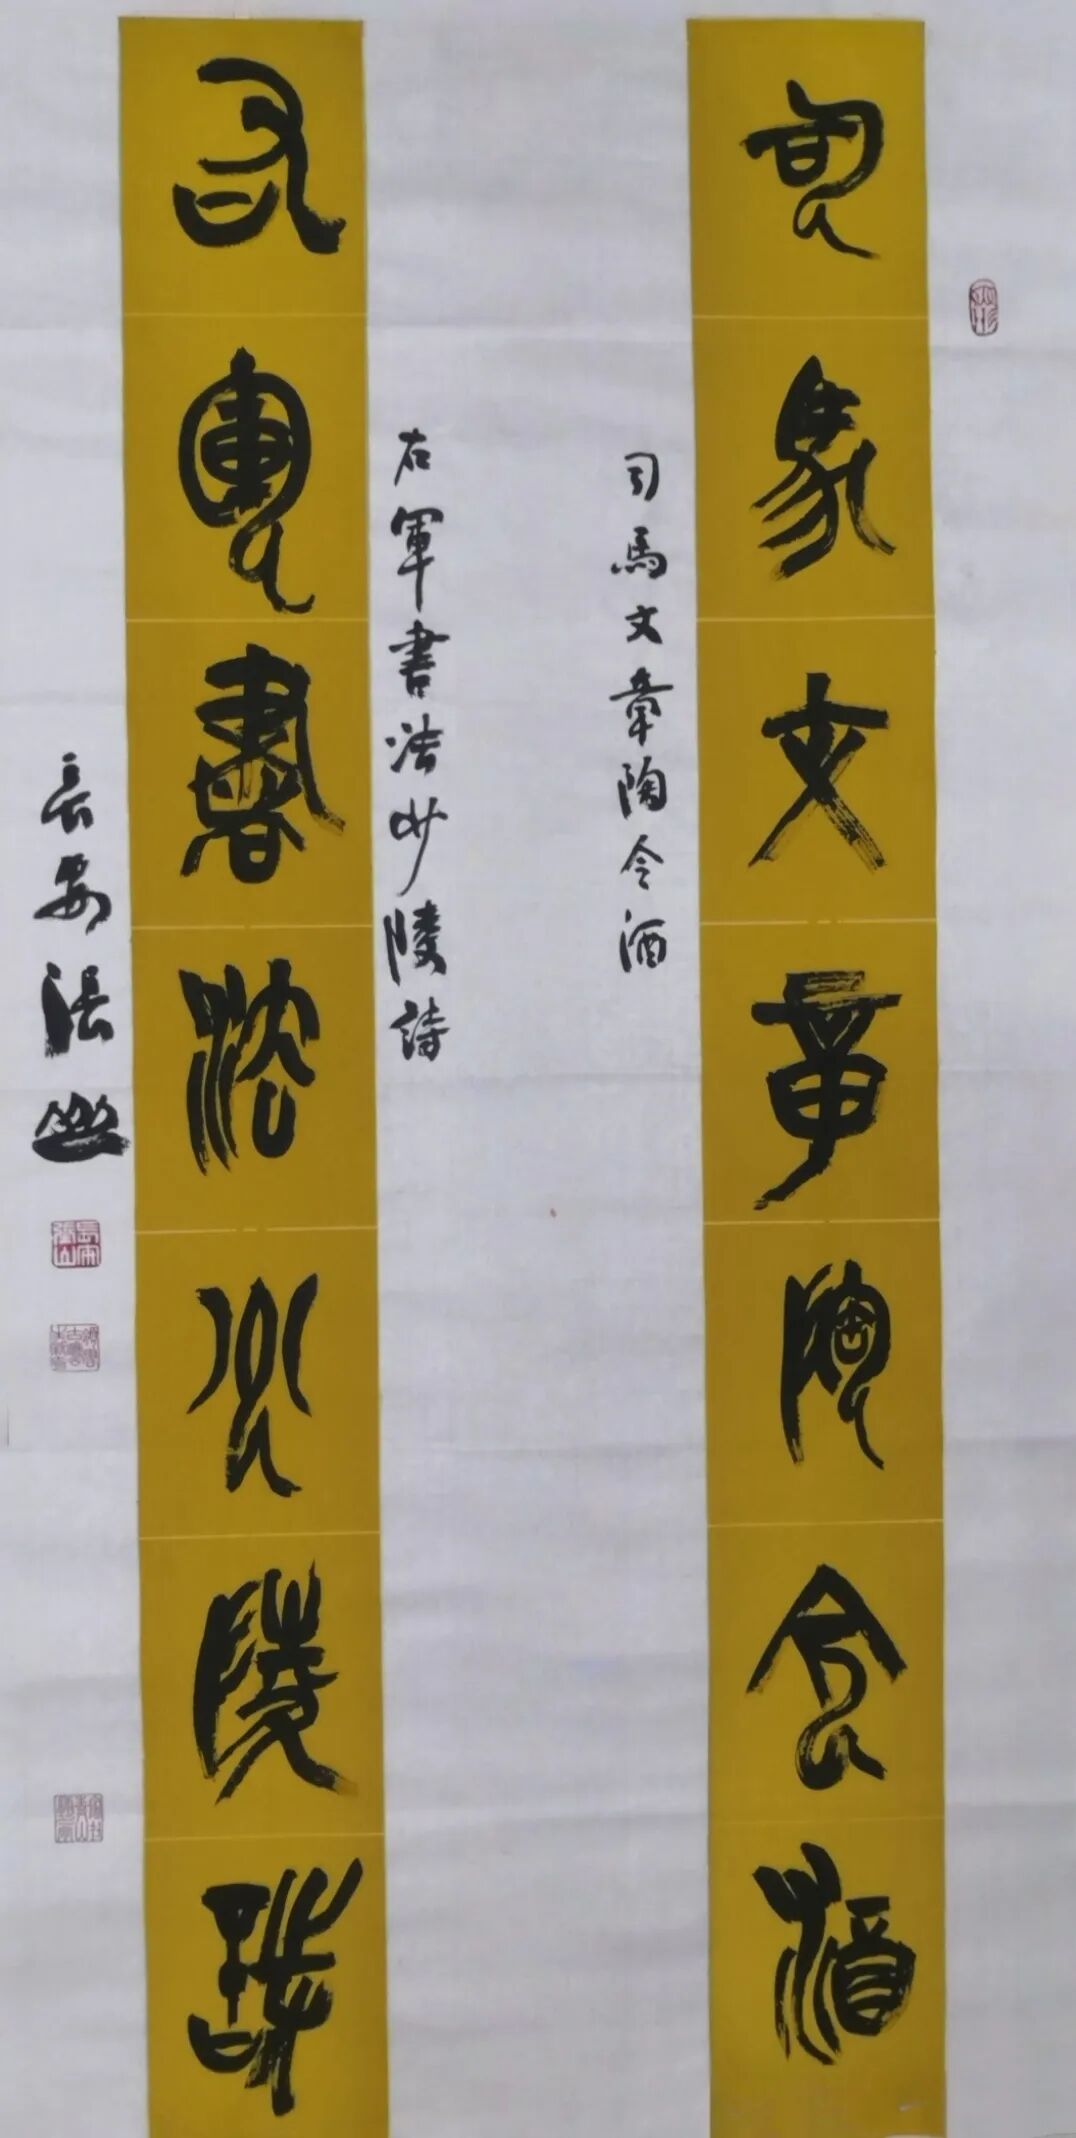 司馬文章陶令酒
司馬文章陶令酒
右軍書法少陵詩
右軍書法少陵詩
長安張山